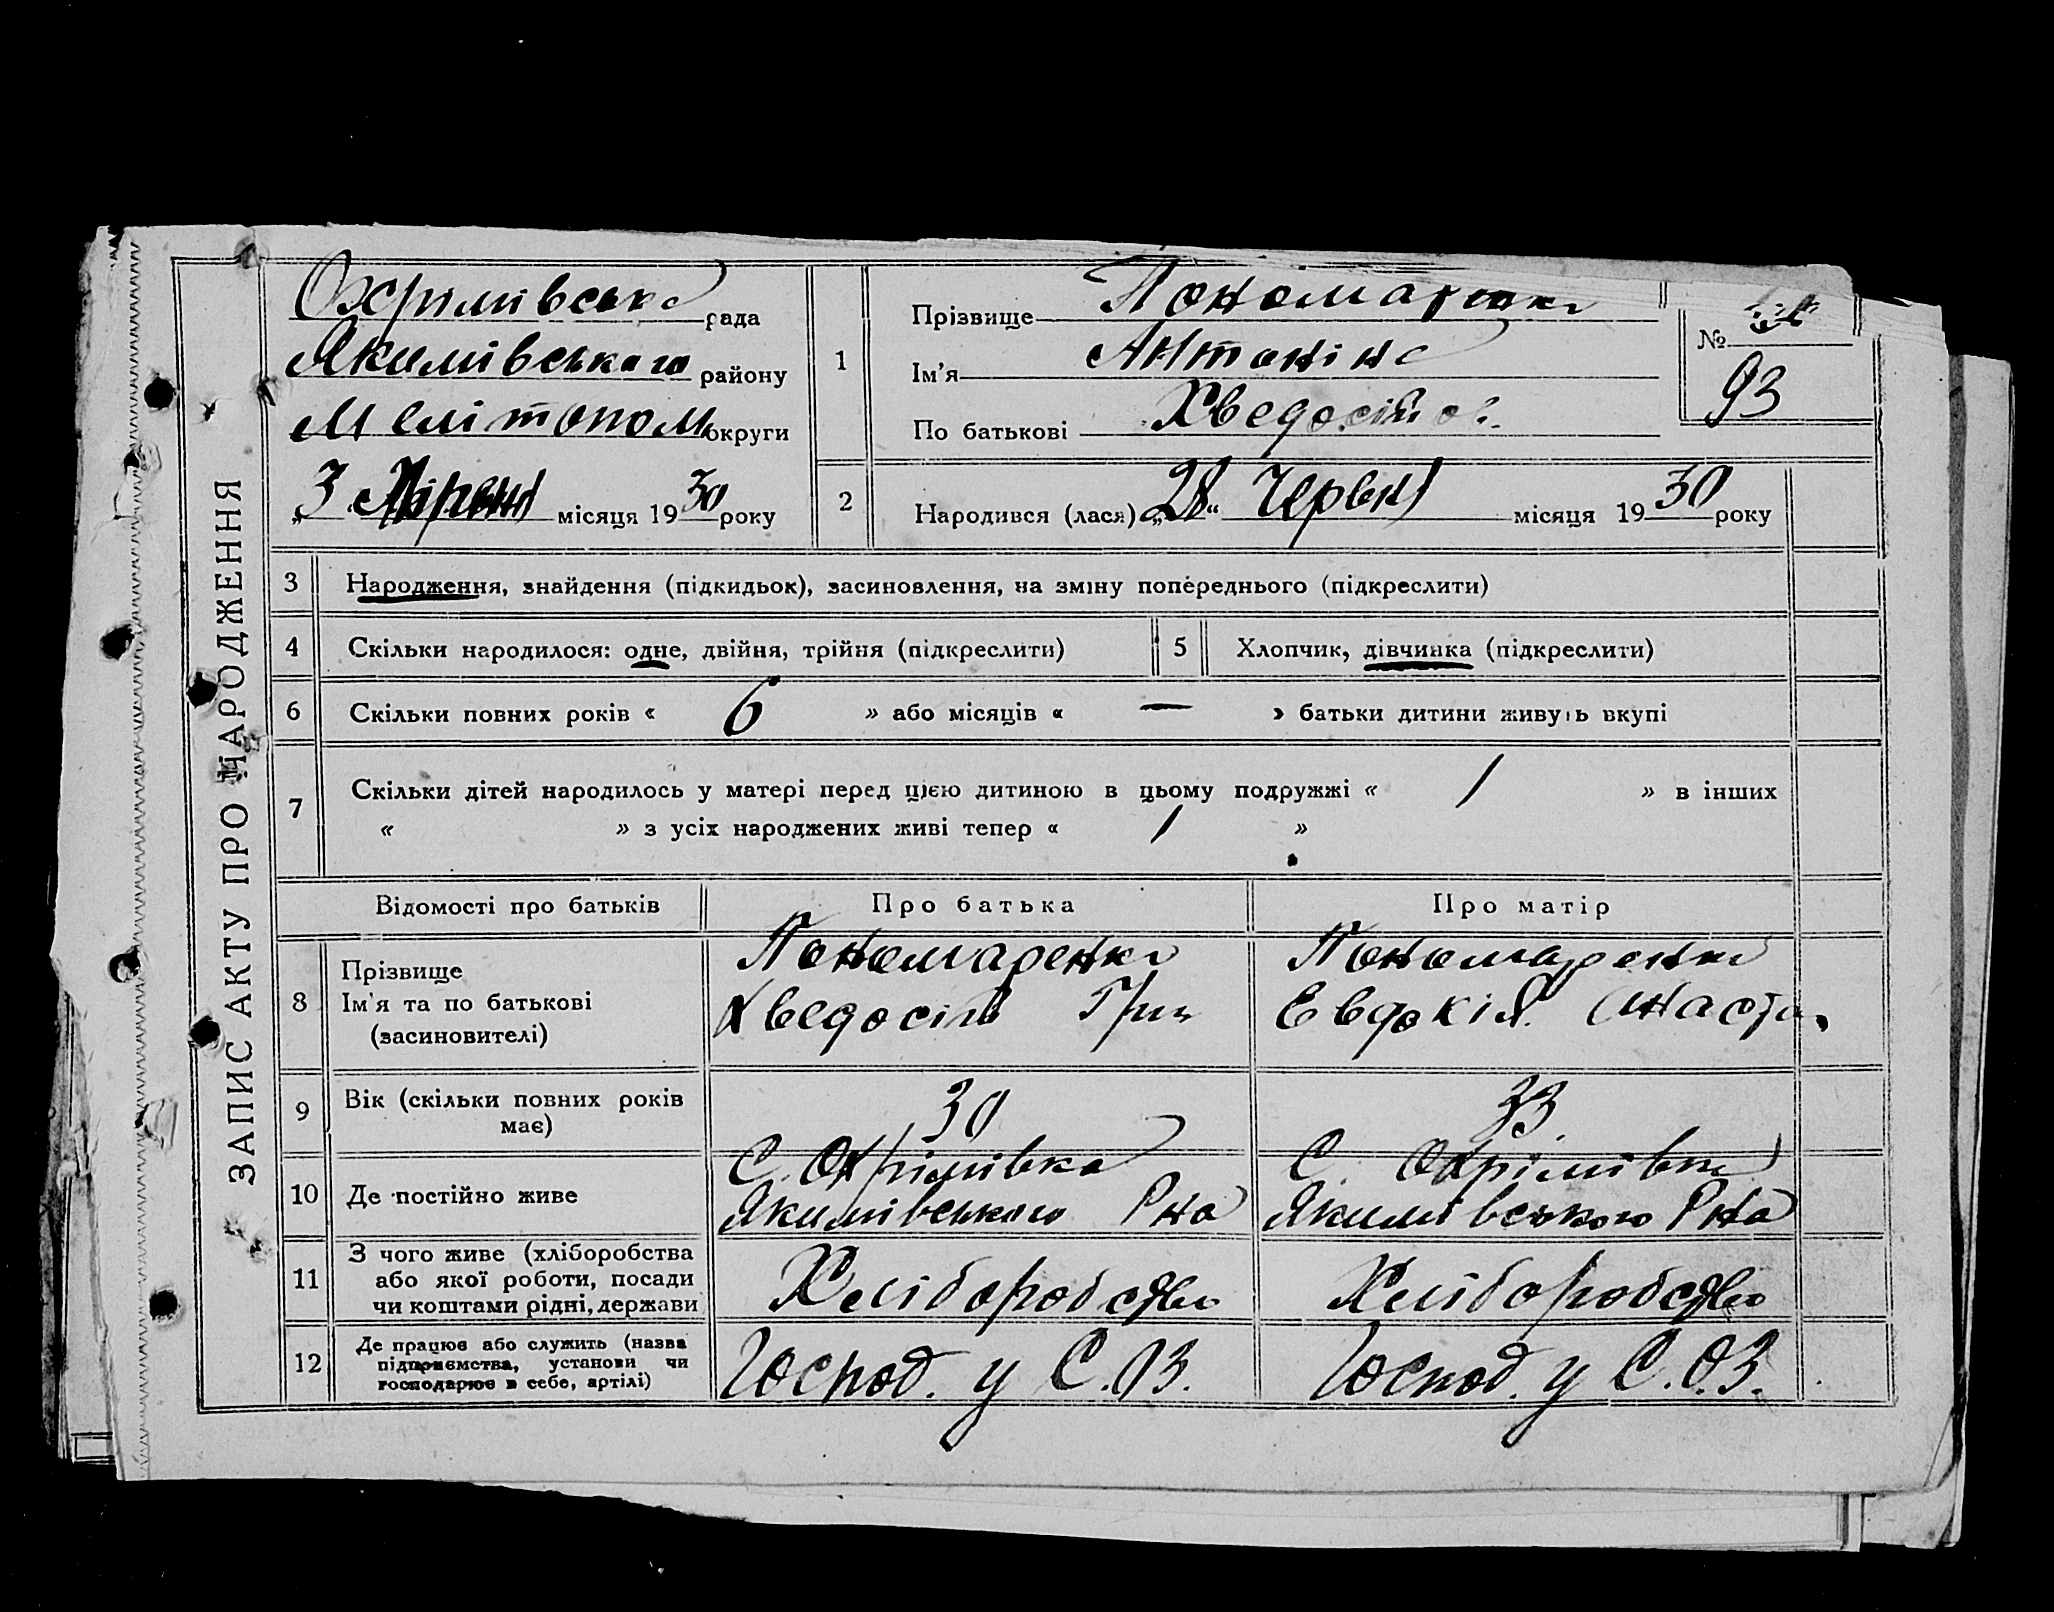 ЗАПИС АКТУ ПРО НАРОДЖЕННЯ
Охрімівська рада
Якимівського району
Мелітопол округи
„3 місяця 1930 року
1
Прізвище Пономаренко
Ім'я Антоніна
По батькові Хведосіївн
№
93
2
Народився (лася) „28“ Червня місяця 1930 року
3 Народження, знайдення (підкидьок), засиновлення, на зміну попереднього (підкреслити)
4 Скільки народилося: одне, двійня, трійня (підкреслити)
5 Хлопчик, дівчинка (підкреслити)
6 Скільки повних років « 6 » або місяців « — » батьки дитини живуть вкупі
7 Скільки дітей народилось у матері перед цією дитиною в цьому подружжі « 1 » в інших
« » з усіх народжених живі тепер « 1 »
Відомості про батьків
Про батька
Про матір
8 Прізвище
Ім'я та по батькові
(засиновителі)
Пономаренко
Хведосій Гри
Пономаренко
Евдокія Анаста.
9 Вік (скільки повних років
має)
30
33
10 Де постійно живе
С. Охрімівка
Якимівського Рна
С. Охрімівка
Якимівського Рна
11 З чого живе (хліборобства
або якої роботи, посади
чи коштами рідні, держави
Хліборобство
Хліборобство
12 Де працює або служить (назва
підприємства, установи чи
господарює в себе, артілі)
Господ. у С.О.З.
Господ. у С.О.З.